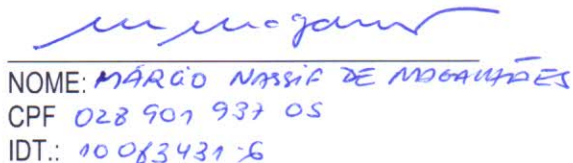 NOME: MÁRCIO NASSIF DE MAGALHÃES
CPF 028 901 937 05
IDT.: 10083431-6